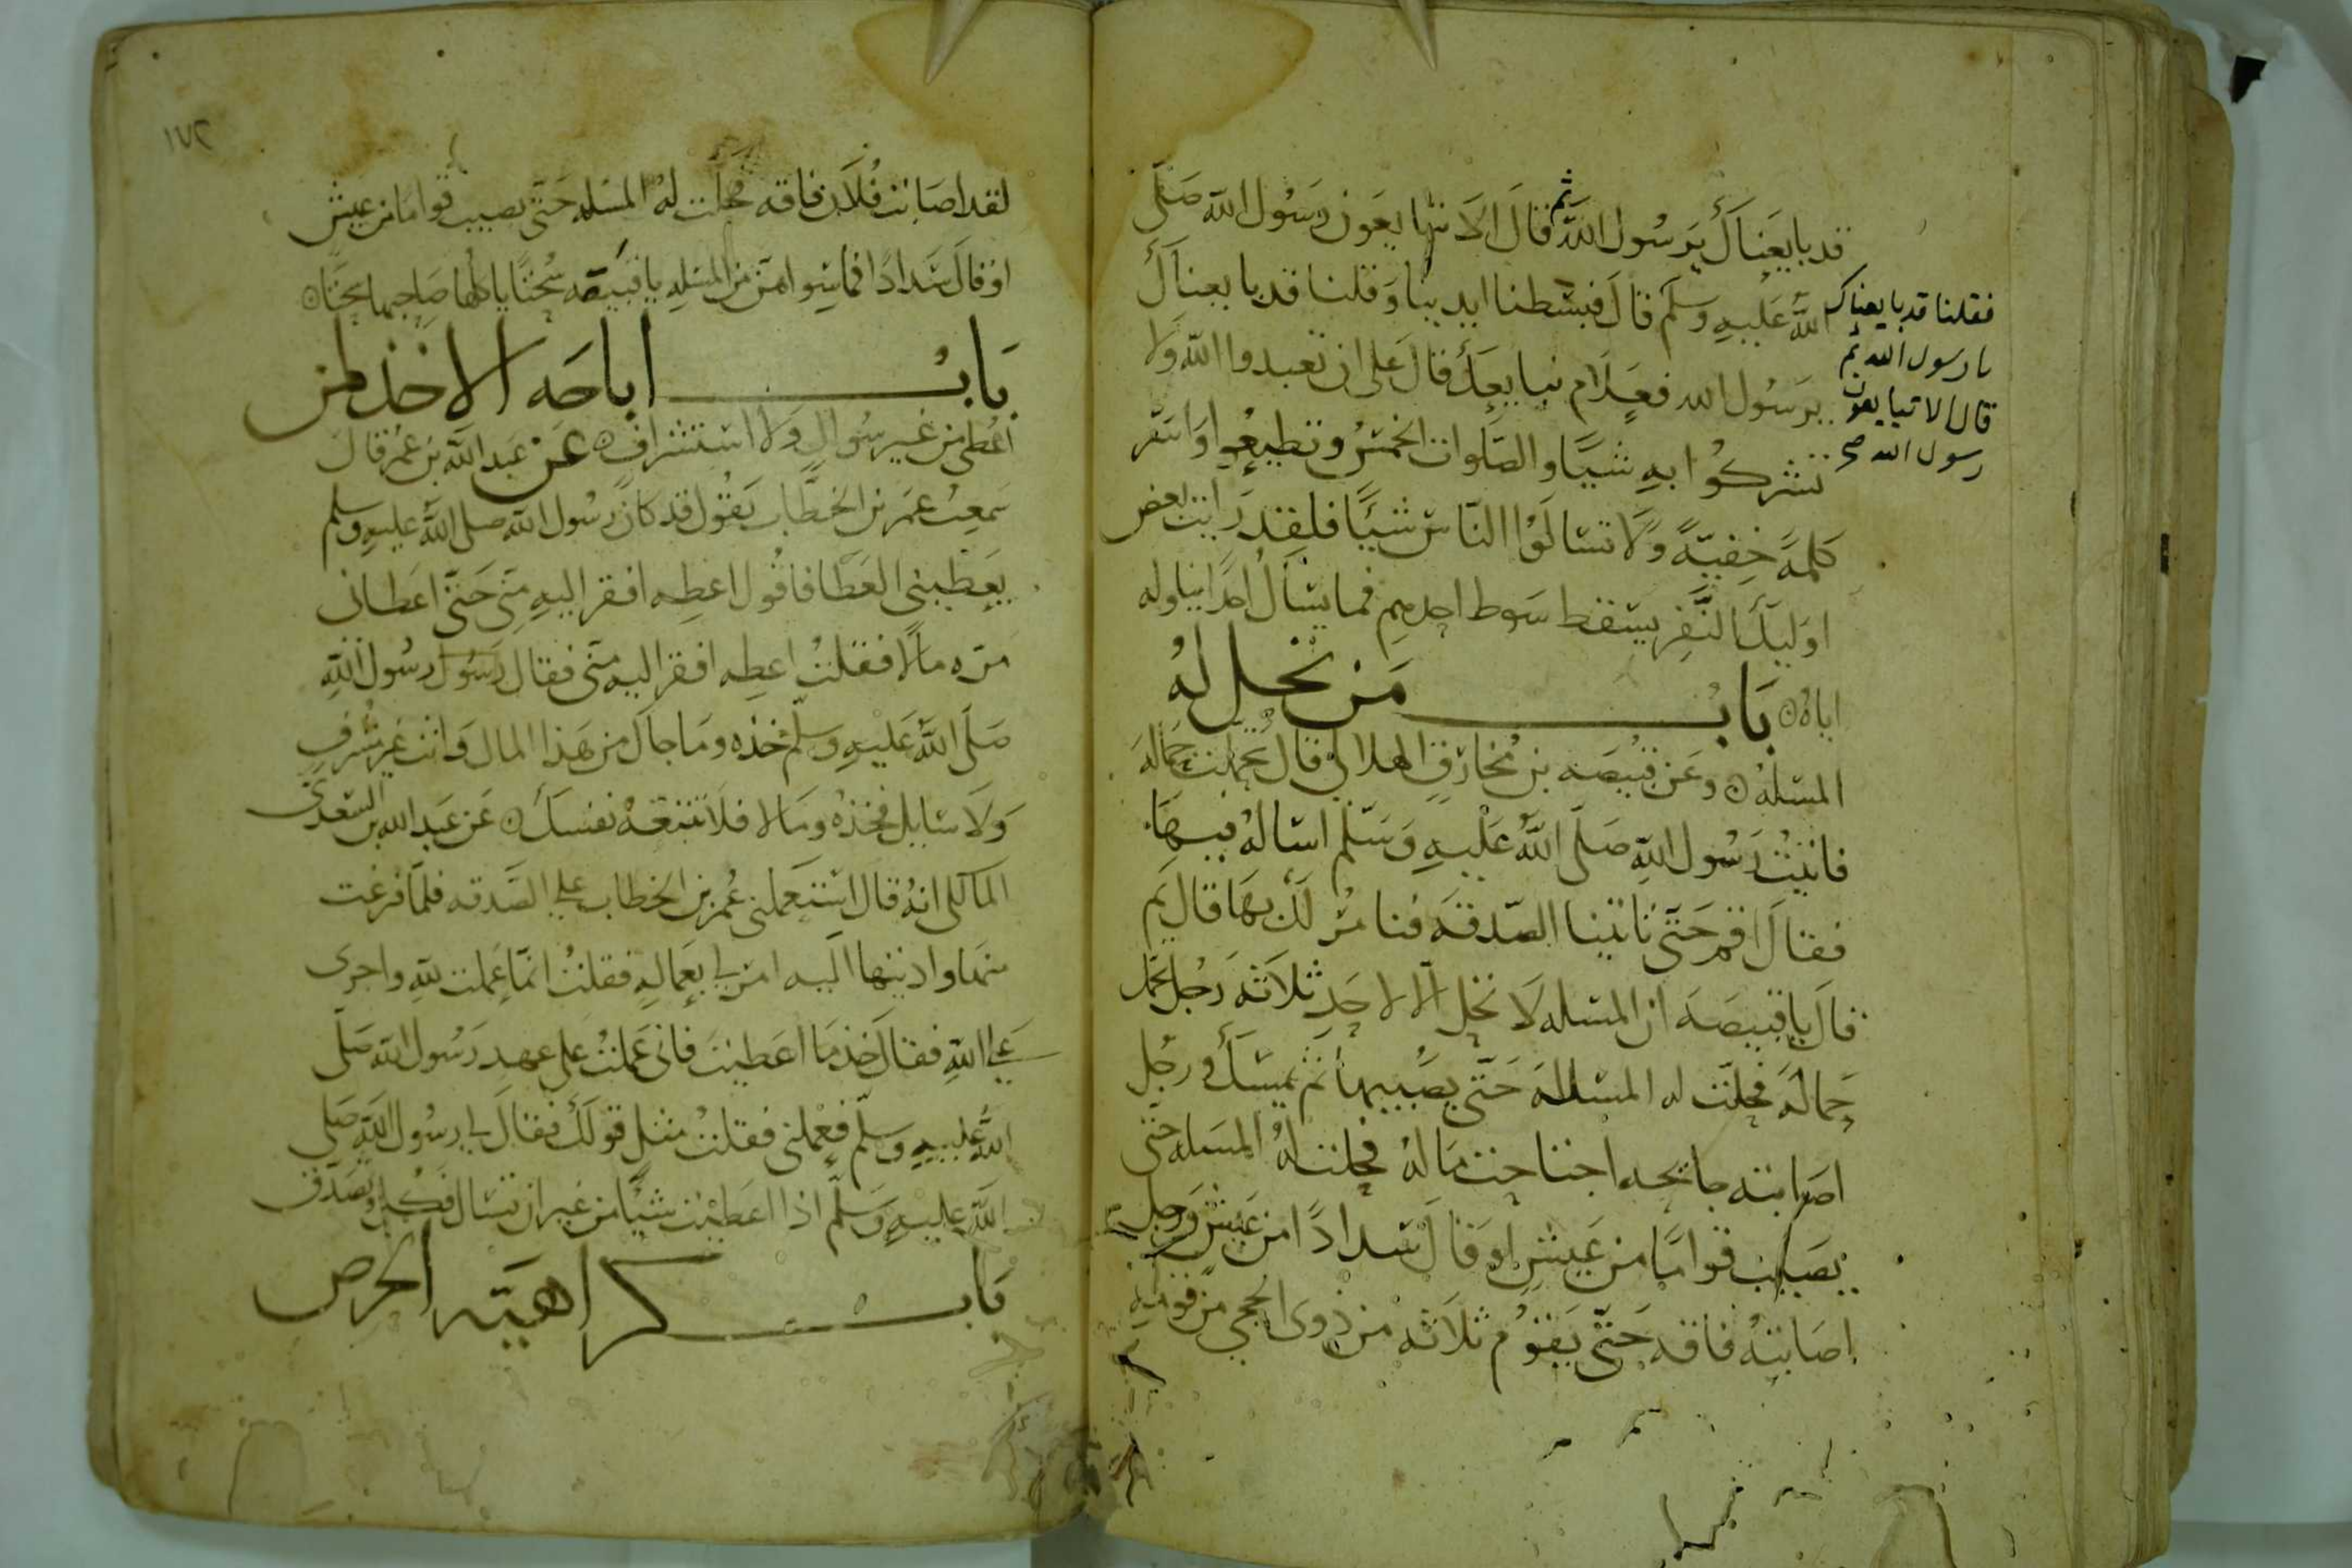 قد بايعناك يرسول الله ثم قال الا تبايعون رسول الله صلى
الله عليه وسلم قال فبسطنا ايدينا وقلنا قد بايعناك
يرسول الله فعلام نبايعك قال على ان تعبدوا الله ولا
تشركوا به شيا والصلوات الخمس وتطيعوا واسر
كلمة خفية ولا تسالوا الناس شيا فلقد رايت بعض
اوليك النفر يسقط سوط احدهم فما يسال احدا يناوله
اياه باب من تحل له
المسلة وعن قبيصه بن مخارق الهلالي قال تحملت حمالة
فاتيت رسول الله صلى الله عليه وسلم اساله فيها
فقال اقم حتى تاتينا الصدقه فنامر لك بها قال ثم
قال يا قبيصه ان المسله لا تحل الا لاحد ثلاثه رجل تحمل
حمالة فحلت له المسلة حتى يصيبها ثم يمسك ورجل
اصابته جايحه اجتاحت ماله فحلت له المسله حتى
يصيب قواما من عيش او قال سدادا من عيش ورجل
اصابته فاقه حتى يقوم ثلاثه من ذوى الحجى من قومه
فقلنا قد بايعناك
يا رسول الله ثم
قال الا تبايعون
رسول الله صح
١٧٢
لقد اصابت فلان فاقه فحلت له المسله حتى يصيب قواما من عيش
او قال سدادا فما سواهن من المسله يا قبيصه سحتا ياكلها صاحبها سحتا
باب اباحه الاخذ لمن
اعطى من غير سوال ولا استشراف عن عبد الله بن عمر قال
سمعت عمر بن الخطاب يقول قد كان رسول الله صلى الله عليه وسلم
يعطينى العطا فاقول اعطه افقر اليه منى حتى اعطانى
مره مالا فقلت اعطه افقر اليه منى فقال رسول رسول الله
صلى الله عليه وسلم خذه وما جاك من هذا المال وانت غير مشرف
ولا سايل فخذه وما لا فلا تتبعه نفسك عن عبد الله بن السعدى
المالكى انه قال استعملنى عمر بن الخطاب على الصدقه فلما فرغت
منها واديتها اليه امر لي بعماله فقلت انما عملت لله واجرى
على الله فقال خذ ما اعطيت فانى عملت على عهد رسول الله صلى
الله عليه وسلم فعملنى فقلت مثل قولك فقال لي رسول الله صلى
الله عليه وسلم اذا اعطيت شيا من غير ان تسال فكل وتصدق
باب كراهيه الحرص